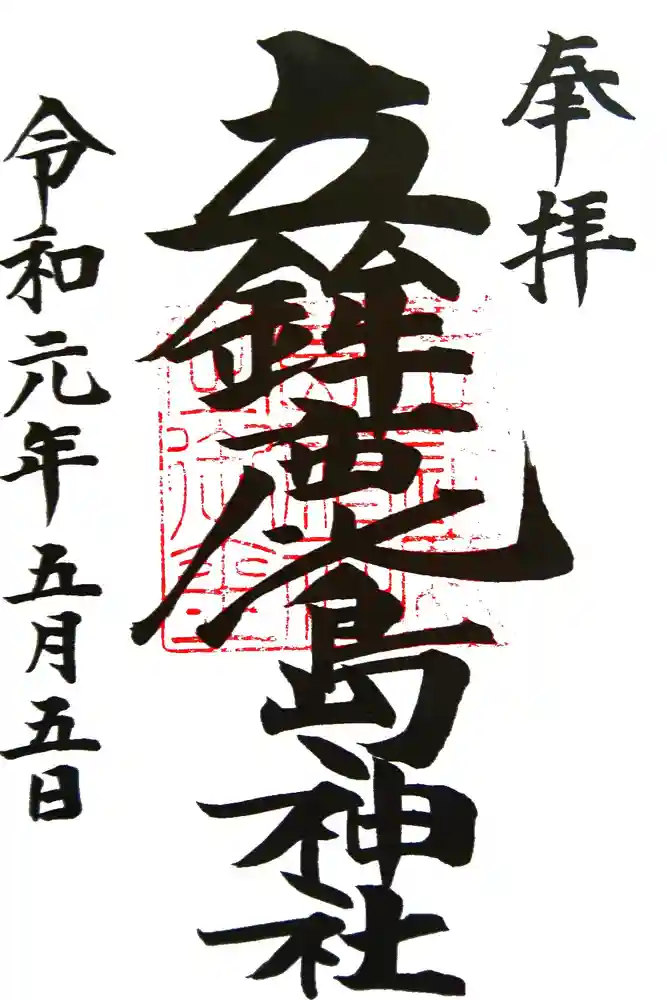 奉拝
立鉾鹿島神社
令和元年五月五日